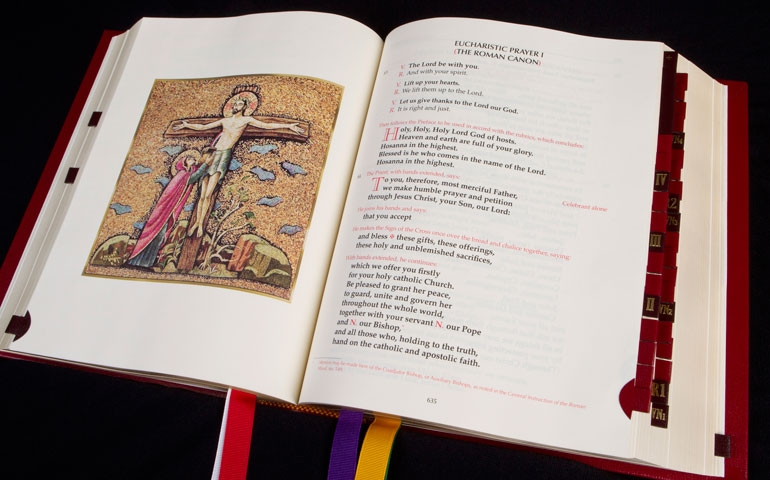 EUCHARISTIC PRAYER I
(THE ROMAN CANON)
V. The Lord be with you.
R. And with your spirit.
V. Lift up your hearts.
R. We lift them up to the Lord.
V. Let us give thanks to the Lord our God.
R. It is right and just.
Then follows the Preface to be used in accord with the rubrics, which concludes:
Holy, Holy, Holy Lord God of hosts.
Heaven and earth are full of your glory.
Hosanna in the highest.
Blessed is he who comes in the name of the Lord.
Hosanna in the highest.
The Priest, with hands extended, says:
To you, therefore, most merciful Father,
we make humble prayer and petition
through Jesus Christ, your Son, our Lord:
Celebrant alone
He joins his hands and says:
that you accept
He makes the Sign of the Cross once over the bread and chalice together, saying:
and bless ✠ these gifts, these offerings,
these holy and unblemished sacrifices,
With hands extended, he continues:
which we offer you firstly
for your holy catholic Church.
Be pleased to grant her peace,
to guard, unite and govern her
throughout the whole world,
together with your servant N. our Pope
and N. our Bishop,*
and all those who, holding to the truth,
hand on the catholic and apostolic faith.
may be made here of the Coadjutor Bishop, or Auxiliary Bishops, as noted in the General Instruction of the Roman
Missal, no. 149.
635
IV
R2
III
II
VN2
R1
VN1